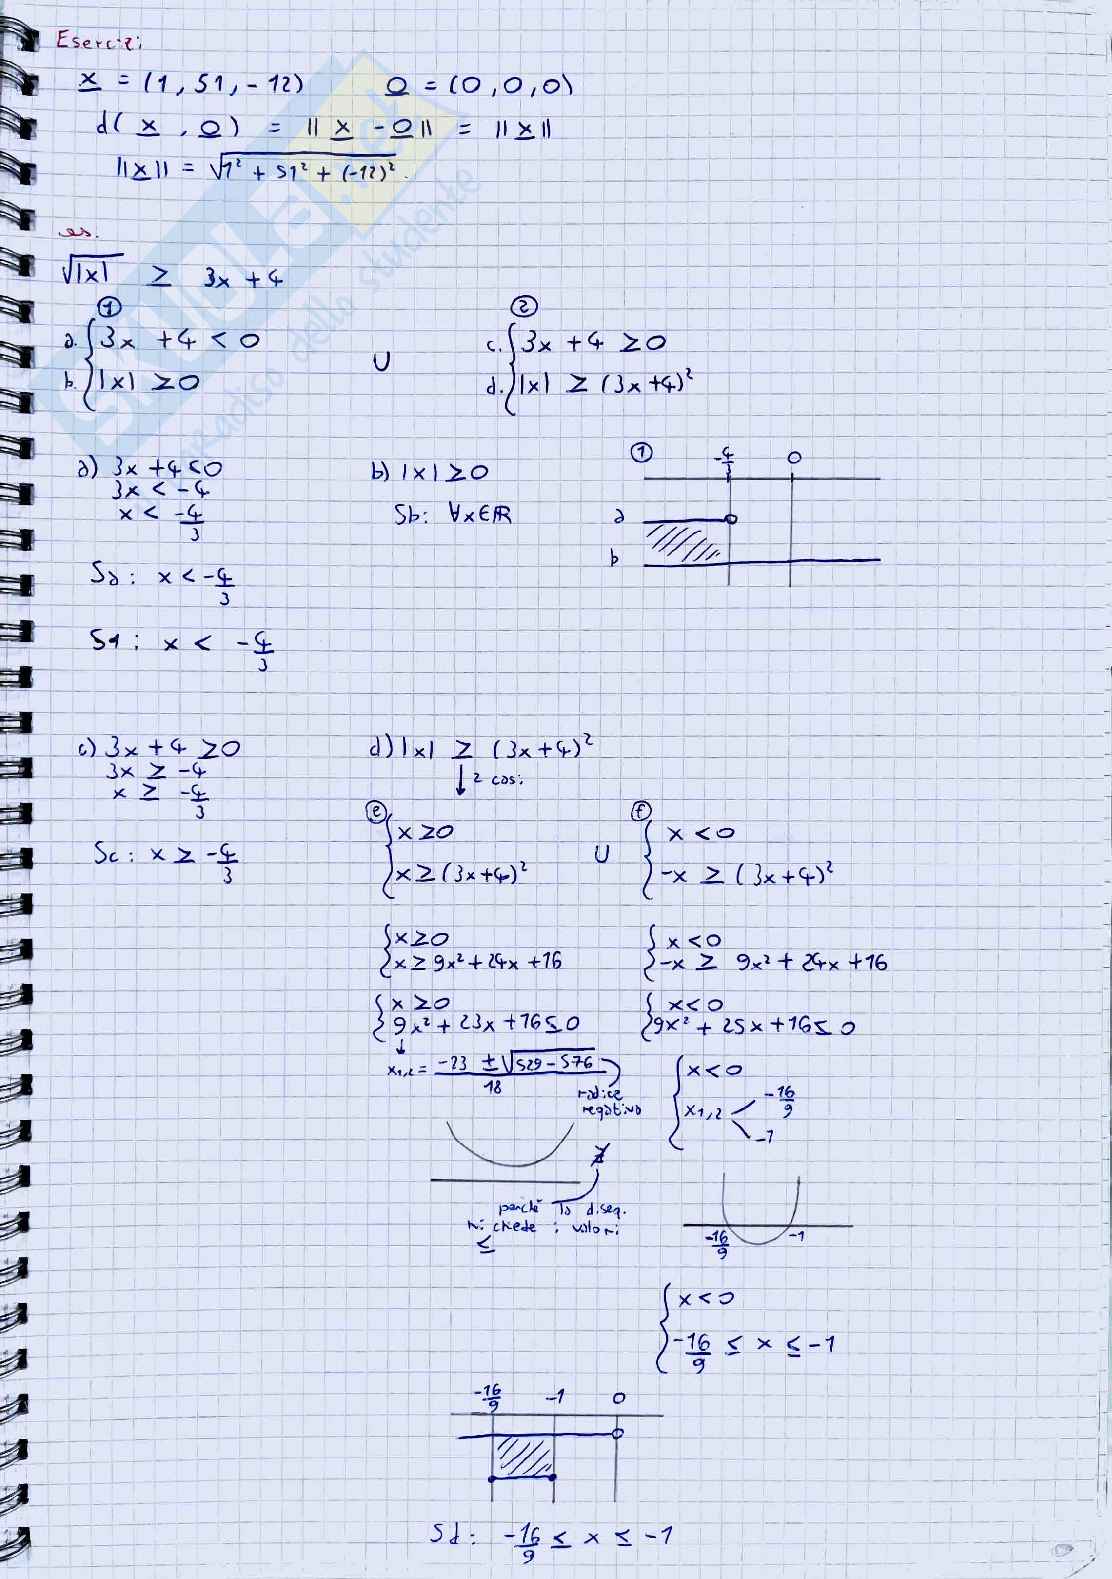 Esercizi
x = (1, 51, -12)   0 = (0,0,0)
d( x , 0 ) = || x - 0 || = || x ||
|| x || = √1² + 51² + (-12)² .
es.
√|x| ≥ 3x + 4
① ②
a. { 3x + 4 < 0   ∪   c. { 3x + 4 ≥ 0
b. { |x| ≥ 0   d. { |x| ≥ (3x+4)²
a) 3x + 4 < 0
3x < -4
x < -4/3
Sa: x < -4/3
S1: x < -4/3
b) |x| ≥ 0
Sb: ∀x∈ℝ
① -4/3 0
a
b
c) 3x + 4 ≥ 0
3x ≥ -4
x ≥ -4/3
Sc: x ≥ -4/3
d) |x| ≥ (3x+4)²
↓ 2 casi
ⓔ { x ≥ 0   ∪   ⓕ { x < 0
{ x ≥ (3x+4)²   { -x ≥ (3x+4)²
{ x ≥ 0   { x < 0
{ x ≥ 9x² + 24x + 16   { -x ≥ 9x² + 24x + 16
{ x ≥ 0   { x < 0
{ 9x² + 23x + 16 ≤ 0   { 9x² + 25x + 16 ≤ 0
x1,2 = -23 ± √529 - 576 / 18
radice
negativa
∄
perché la diseq.
mi chiede i valori
≤
{ x < 0
{ x1,2 -16/9 -1
-16/9 -1
{ x < 0
{ -16/9 ≤ x ≤ -1
-16/9 -1 0
Sd: -16/9 ≤ x ≤ -1